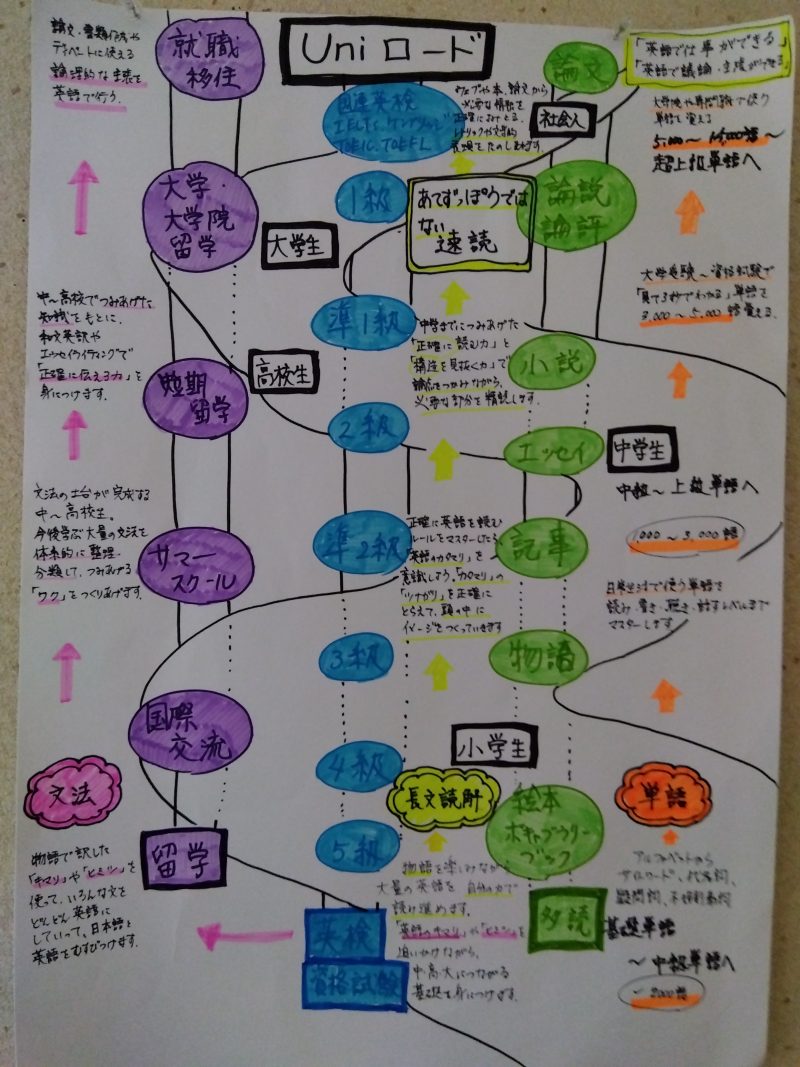 Uni ロード
論文・書類作成や
ディベートに使える
論理的な主張を
英語で行う.
就職
移住
国連英検
IELTS. ケンブリッジ
TOEIC. TOEFL
ウェブや本、論文から
必要な情報を
正確によみとる.
論文
社会人
「英語で仕事ができる」
「英語で議論・主張ができる」
大学院や専門職で使う
単語を覚える
超上級単語へ
大学・
大学院
留学
大学生
1級
あてずっぽうでは
ない
速読
論説
論評
中〜高校でつみあげた
知識をもとに、
和文英訳や
エッセイライティングで
「正確に伝える力」を
身につけます.
準1級
中学までにつみあげた
「正確に読む力」と
「構造を見抜く力」で
論点をつかみながら、
必要な部分を精読します.
大学受験〜資格試験で
「見て3秒でわかる」単語を
3,000〜5,000語覚える.
小説
短期
留学
高校生
2級
エッセイ
中学生
中級〜上級単語へ
文法の土台が完成する
中〜高校生。
今後学ぶ大量の文法を
体系的に整理・
分類して、つみあげる
「ワク」をつくりあげます.
サマー
スクール
準2級
正確に英語を読む
ルールをマスターしたら
「英語のカタマリ」を
意識しよう.「カタマリ」の
「ツナガリ」を正確に
とらえて、頭の中に
イメージをつくっていきます
記事
000〜3,000語
日常生活で使う単語を
読み・書き・聴き・話すレベルまで
マスターします
3級
物語
国際
交流
4級
小学生
文法
長文読解
絵本
ボキャブラリー
ブック
単語
物語で訳した
「キマリ」や「ヒミツ」を
使って、いろんな文を
どんどん英語に
していって、日本語と
英語をむすびつけます.
留学
5級
物語を楽しみながら
大量の英語を自分の力で
読み進めます.
「英語のキマリ」や「ヒミツ」を
追いかけながら、
中・高・大につながる
基礎を身につけます.
多読
アルファベットから
疑問詞、
基礎単語
〜中級単語へ
〜2000語
英検
資格試験